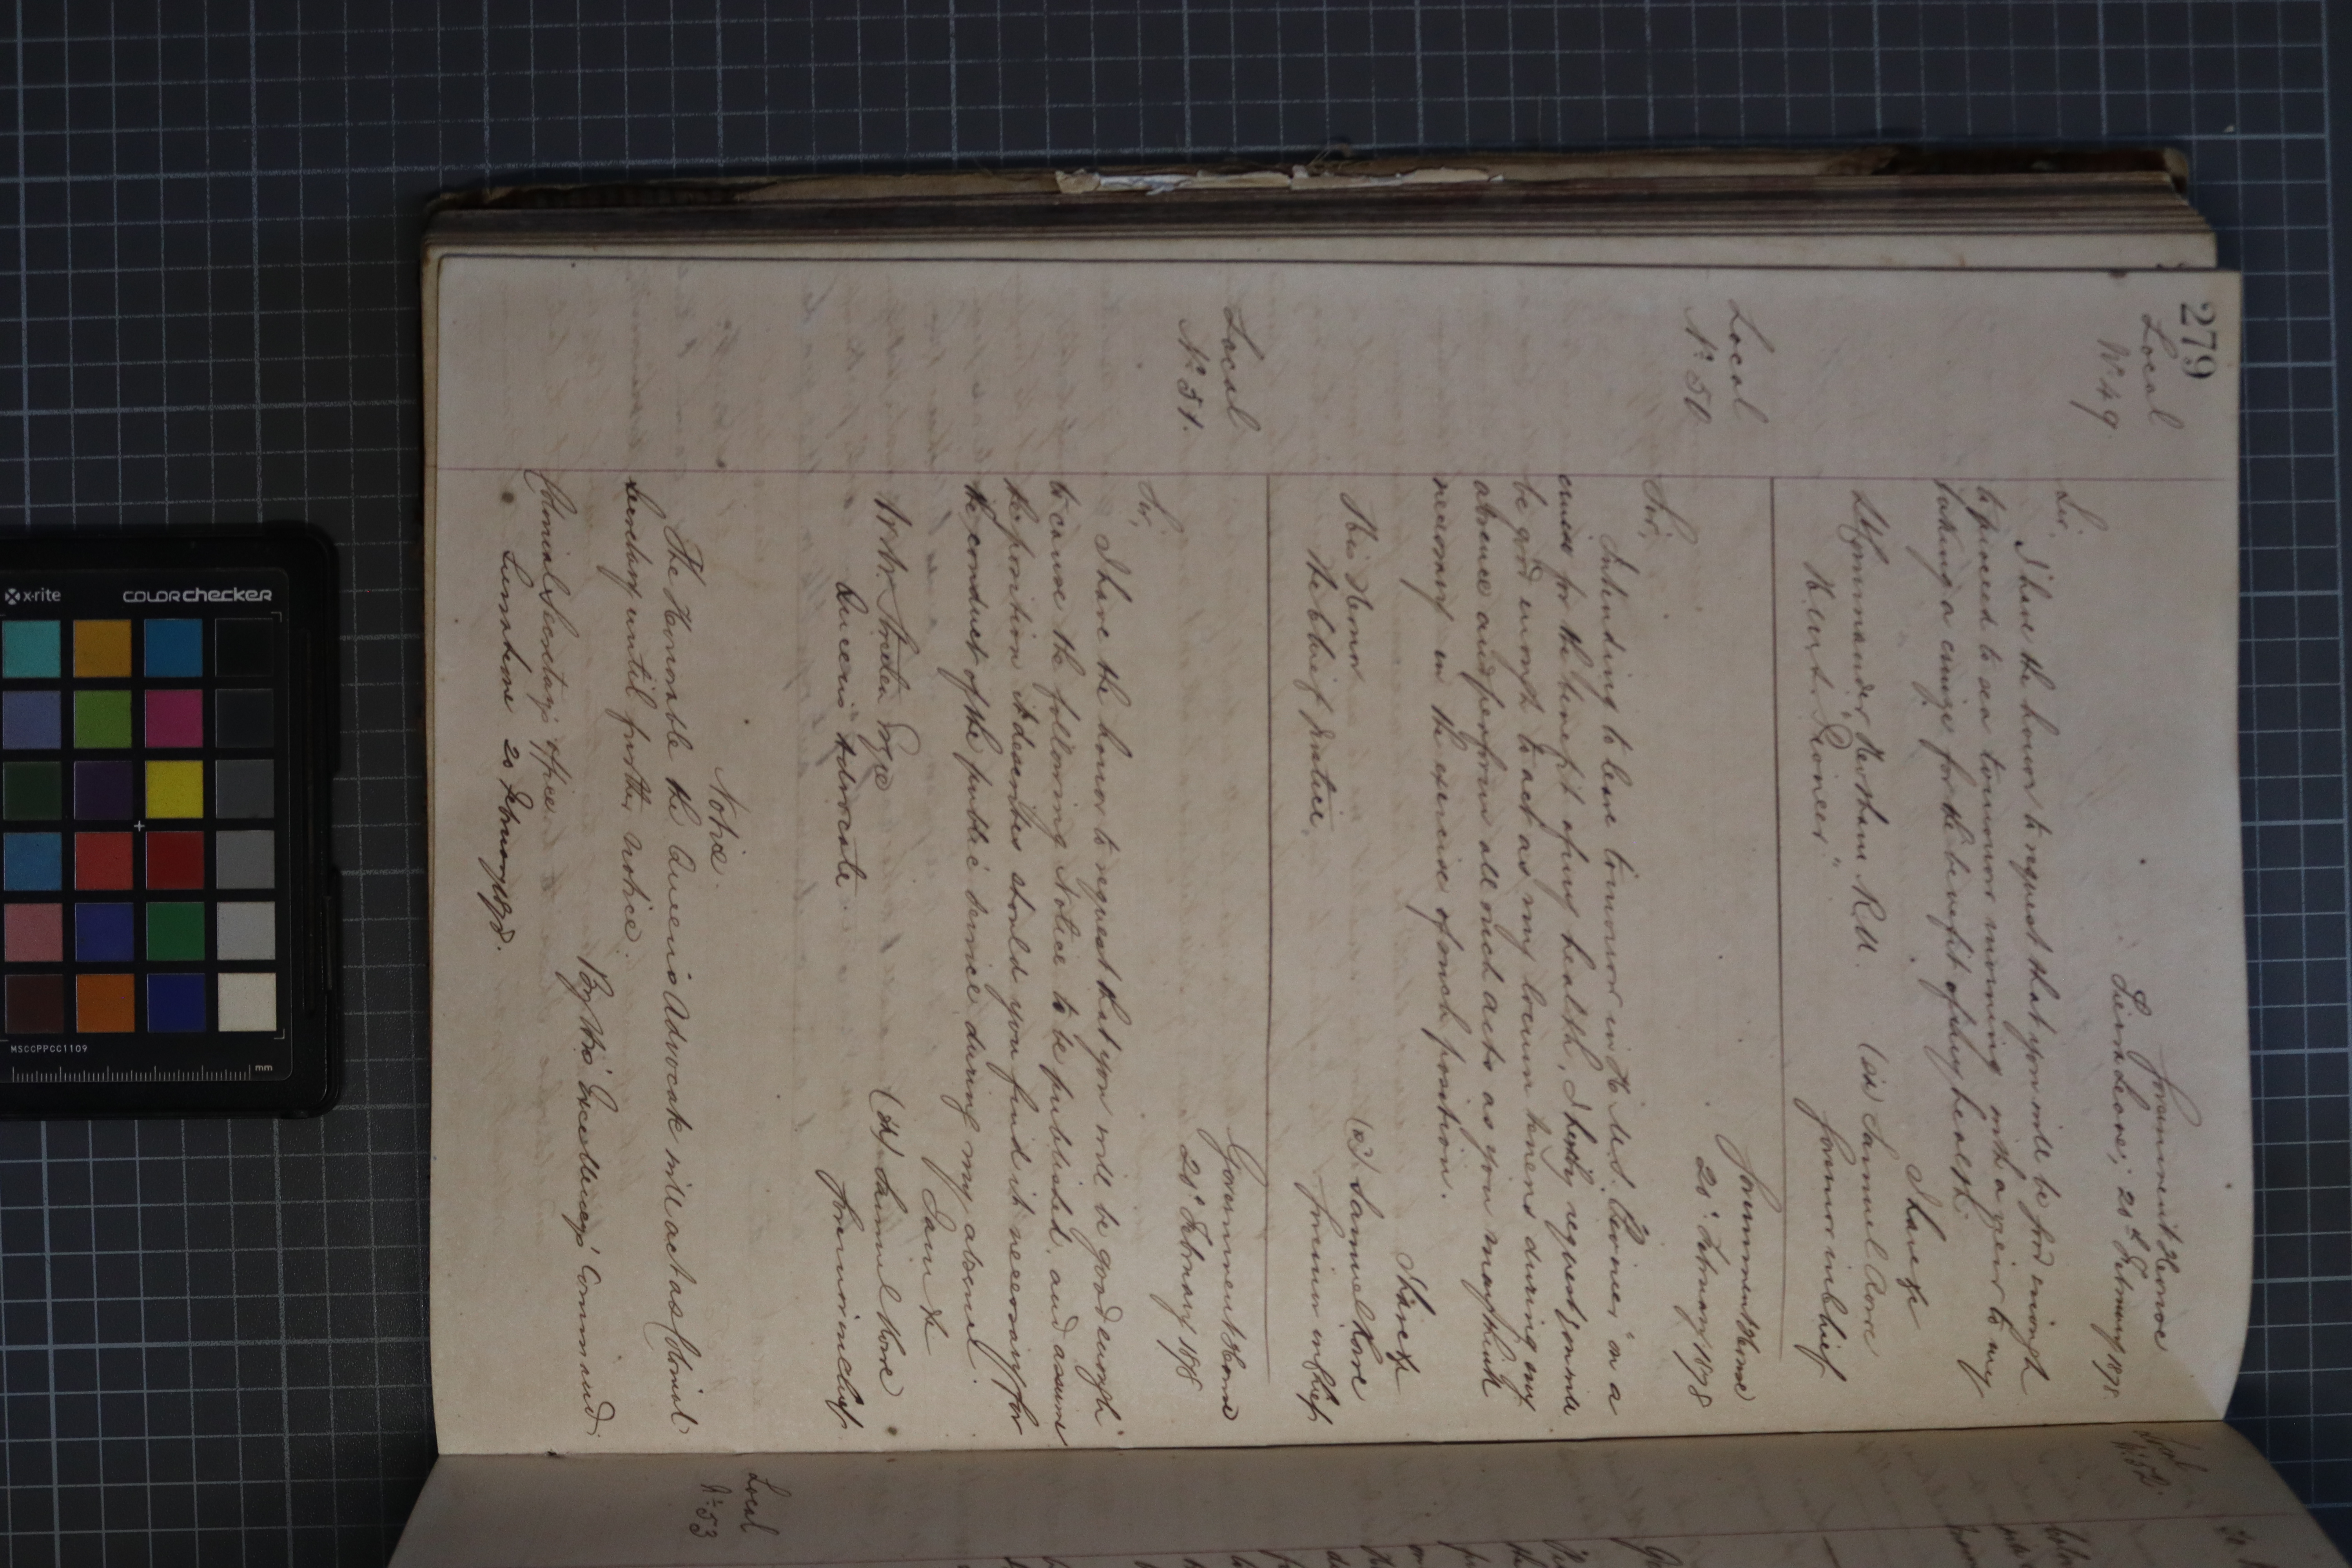 279
Local
Nº 49
Government House
Sierra Leone, 20th February 1878
Sir,
I have the honor to request that you will be good enough
to proceed to sea tomorrow morning with a view to my
taking a cruize for the benefit of my health.
I have &c
Lt Commander Hersham R.N. (sd) Samuel Rowe
H.M.S. "Pioneer" Governor in Chief
Local
Nº 50
Government House
20th February 1878
Sir,
Intending to leave tomorrow in H.M.S. "Pioneer" on a
cruise for the benefit of my health, I hereby request you will
be good enough to act as my locum tenens during my
absence and perform all such acts as you may think
necessary in the exercise of such position.
I have &c
His Honor (sd) Samuel Rowe
The Chief Justice Governor in Chief
Local
Nº 51.
Government House
20th February 1878
Sir,
I have the honor to request that you will be good enough
to cause the following Notice to be published, and assume
the position it describes should you find it necessary for
the conduct of the public service during my absence.
I am &c
(sd) Samuel Rowe
Queen's Advocate Governor in Chief
Notice.
The Honorable the Queen's Advocate will act as Colonial
Secretary until further notice.
By His Excellency's Command
Colonial Secretary's Office
Sierra Leone 20 February 1878.
Local
Nº 52
Local
Nº 53
x-rite
colorchecker
MSCCPPCC1109
mm